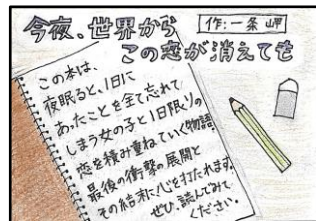 今夜、世界から
この恋が消えても
作:一条 岬
この本は、
夜眠ると、1日に
あったことを全て忘れて
しまう女の子と1日限りの
恋を積み重ねていく物語。
最後の衝撃の展開と
その結末に心を打たれます。
ぜひ、読んでみて
ください。